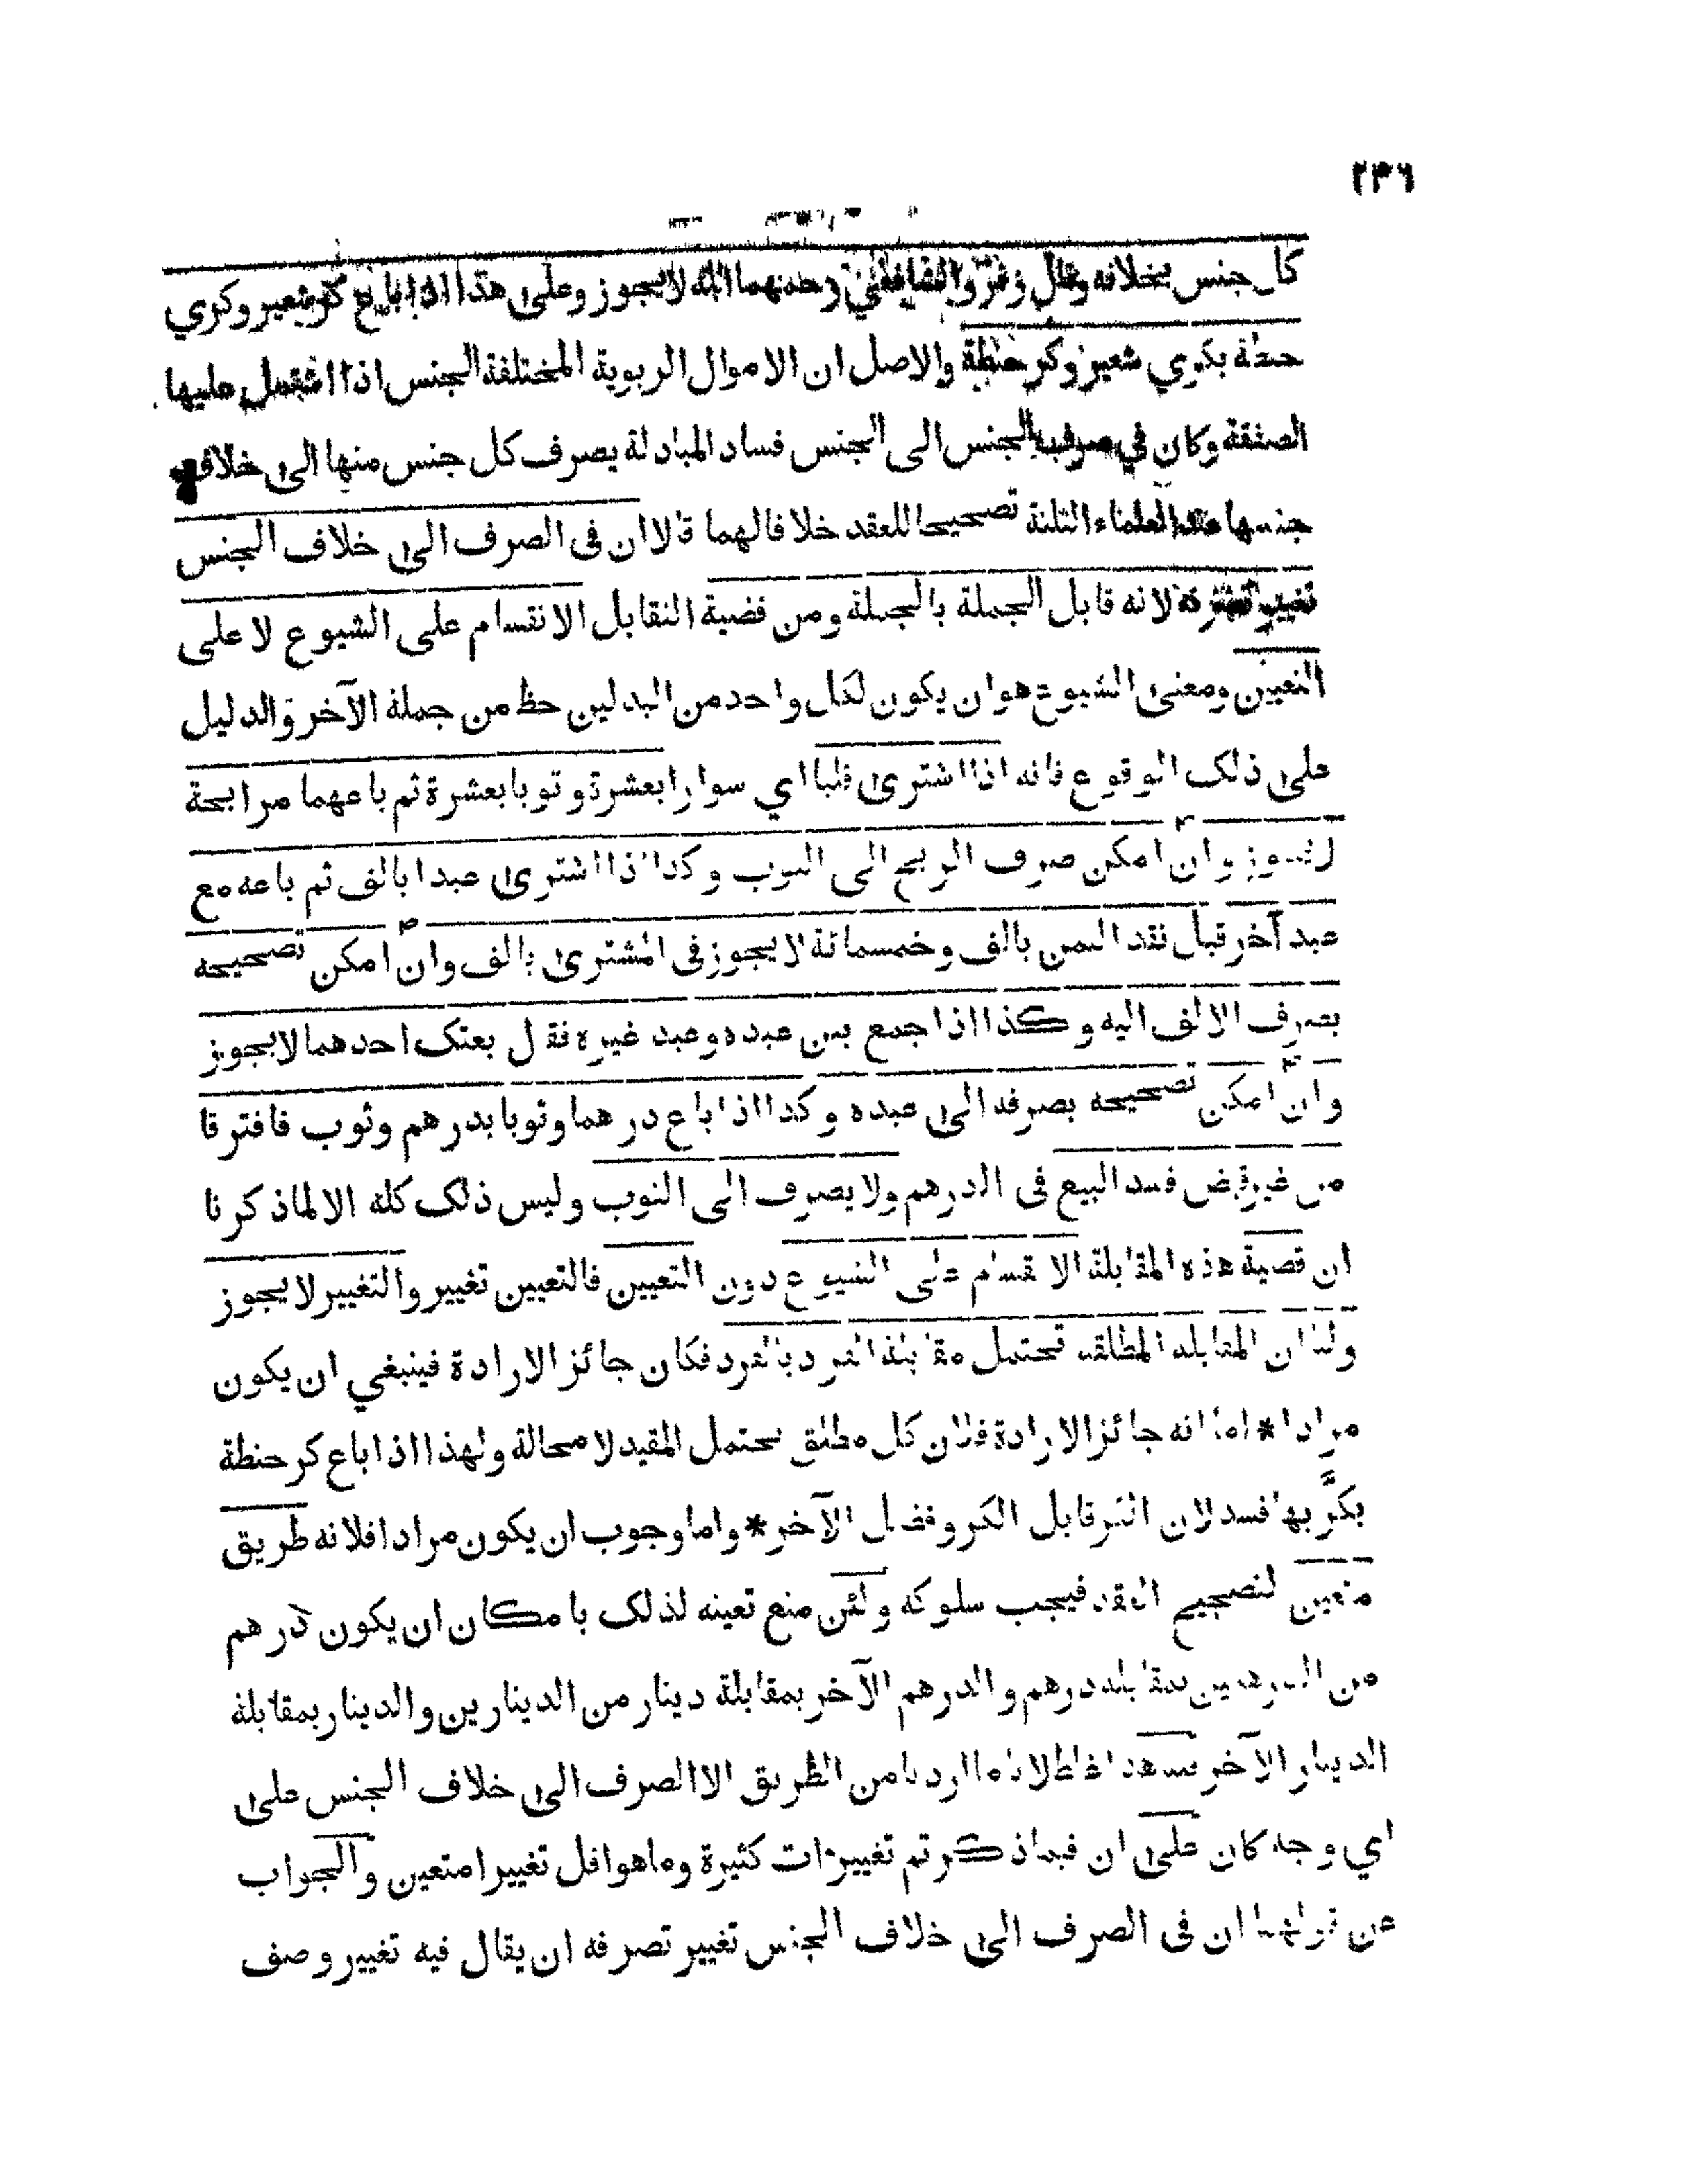 ٢٣٦
كل جنس بخلافه وقال زفر والشافعي رحمهما الله لا يجوز وعلى هذا اذا باع كر شعير وكري
حنطة بكري شعير وكر حنطة والاصل ان الاموال الربوية المختلفة الجنس اذا اشتمل عليها
الصفقة وكان في صرف الجنس الى الجنس فساد المبادلة يصرف كل جنس منها الى خلاف
جنسها عند العلماء الثلثة تصحيحا للعقد خلافا لهما قالا ان فى الصرف الى خلاف الجنس
تغيير تصرفه لانه قابل الجملة بالجملة ومن قضية التقابل الانقسام على الشيوع لا على
التعيين ومعنى الشيوع هو ان يكون لكل واحد من البدلين حظ من جملة الآخر والدليل
على ذلك الوقوع فانه اذا اشترى قلبا اي سوارا بعشرة وثوبا بعشرة ثم باعهما مرابحة
لا يجوز وان امكن صرف الربح الى الثوب وكذا اذا اشترى عبدا بالف ثم باعه مع
عبد آخر قبل نقد الثمن بالف وخمسمائة لا يجوز فى المشترى بالف وان امكن تصحيحه
بصرف الالف اليه وكذا اذا جمع بين عبده وعبد غيره فقال بعتك احدهما لا يجوز
وان امكن تصحيحه بصرفه الى عبده وكذا اذا باع درهما وثوبا بدرهم وثوب فافترقا
من غير قبض فسد البيع فى الدرهم ولا يصرف الى الثوب وليس ذلك كله الا لما ذكرنا
ان قضية هذه المقابلة الانقسام على الشيوع دون التعيين فالتعيين تغيير والتغيير لا يجوز
ولنا ان المقابلة المطلقة تحتمل مقابلة الفرد بالفرد فكان جائز الارادة فينبغي ان يكون
مرادا * اما انه جائز الارادة فلان كل مطلق يحتمل المقيد لا محالة ولهذا اذا باع كر حنطة
بكرّ بها فسد لان الكر قابل الكر وفضل الآخر * واما وجوب ان يكون مرادا فلانه طريق
متعين لتصحيح العقد فيجب سلوكه ولئن منع تعينه لذلك بامكان ان يكون درهم
من الدرهمين بمقابلة درهم والدرهم الآخر بمقابلة دينار من الدينارين والدينار بمقابلة
الدينار الآخر فهذا غلط لانا ما اردنا من الطريق الا الصرف الى خلاف الجنس على
اي وجه كان على ان فيما ذكرتم تغييرات كثيرة وما هو اقل تغييرا متعين والجواب
عن قولهما ان فى الصرف الى خلاف الجنس تغيير تصرفه ان يقال فيه تغيير وصف